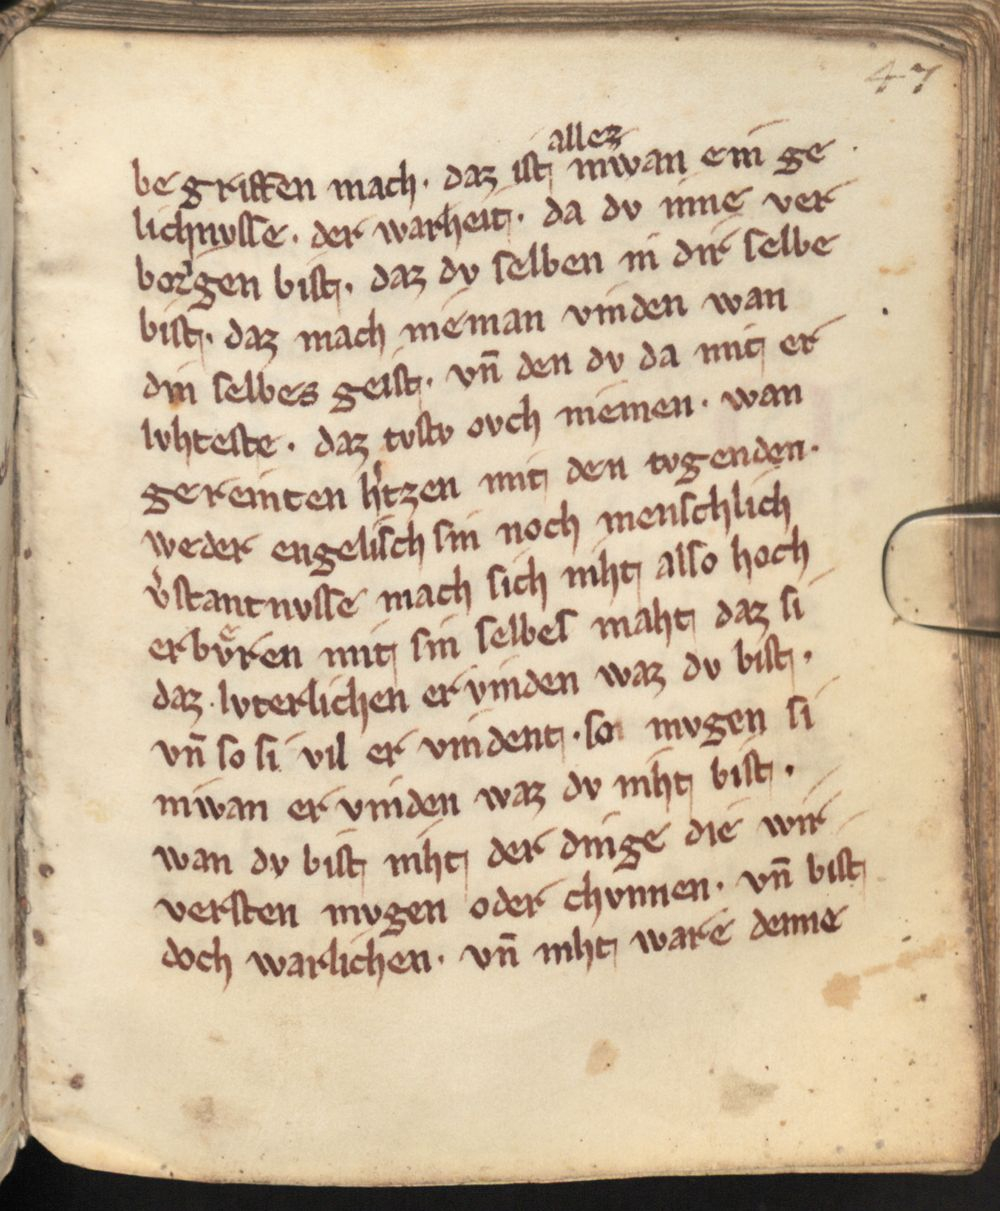 47
allez
begriffen mach. daz ist niwan ein ge
lichnvsse. der warheit. da dv inne ver
borgen bist. daz dv selben in dir selbe
bist. daz mach nieman vinden wan
din selbes geist. vn̄ den dv da mit er
lvhteste. daz tvstv ovch niemen. wan
gereinten h'tzen mit den tvgenden.
weder engelisch sin noch menschlich
v'stantnvsse mach sich niht also hoch
erbvͤren mit sin selbes maht daz si
daz. lvterlichen ervinden waz dv bist.
vn̄ so si vil er vindent. so mvgen si
niwan er vinden waz dv niht bist.
wan dv bist niht der dinge die wir
versten mvgen oder chvnnen. vn̄ bist
doch warlichen. vn̄ niht ware denne